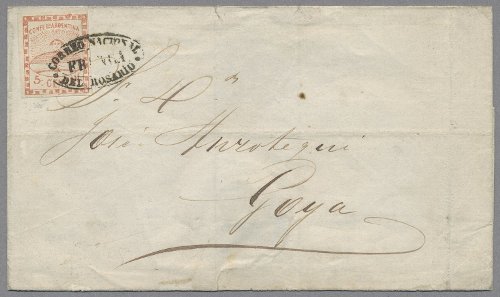 CONFEON ARGENTINA
5 CEN
CORREO NACIONAL
FRANCA
DEL ROSARIO
Sr. D.n
José Anrotegui
Goya